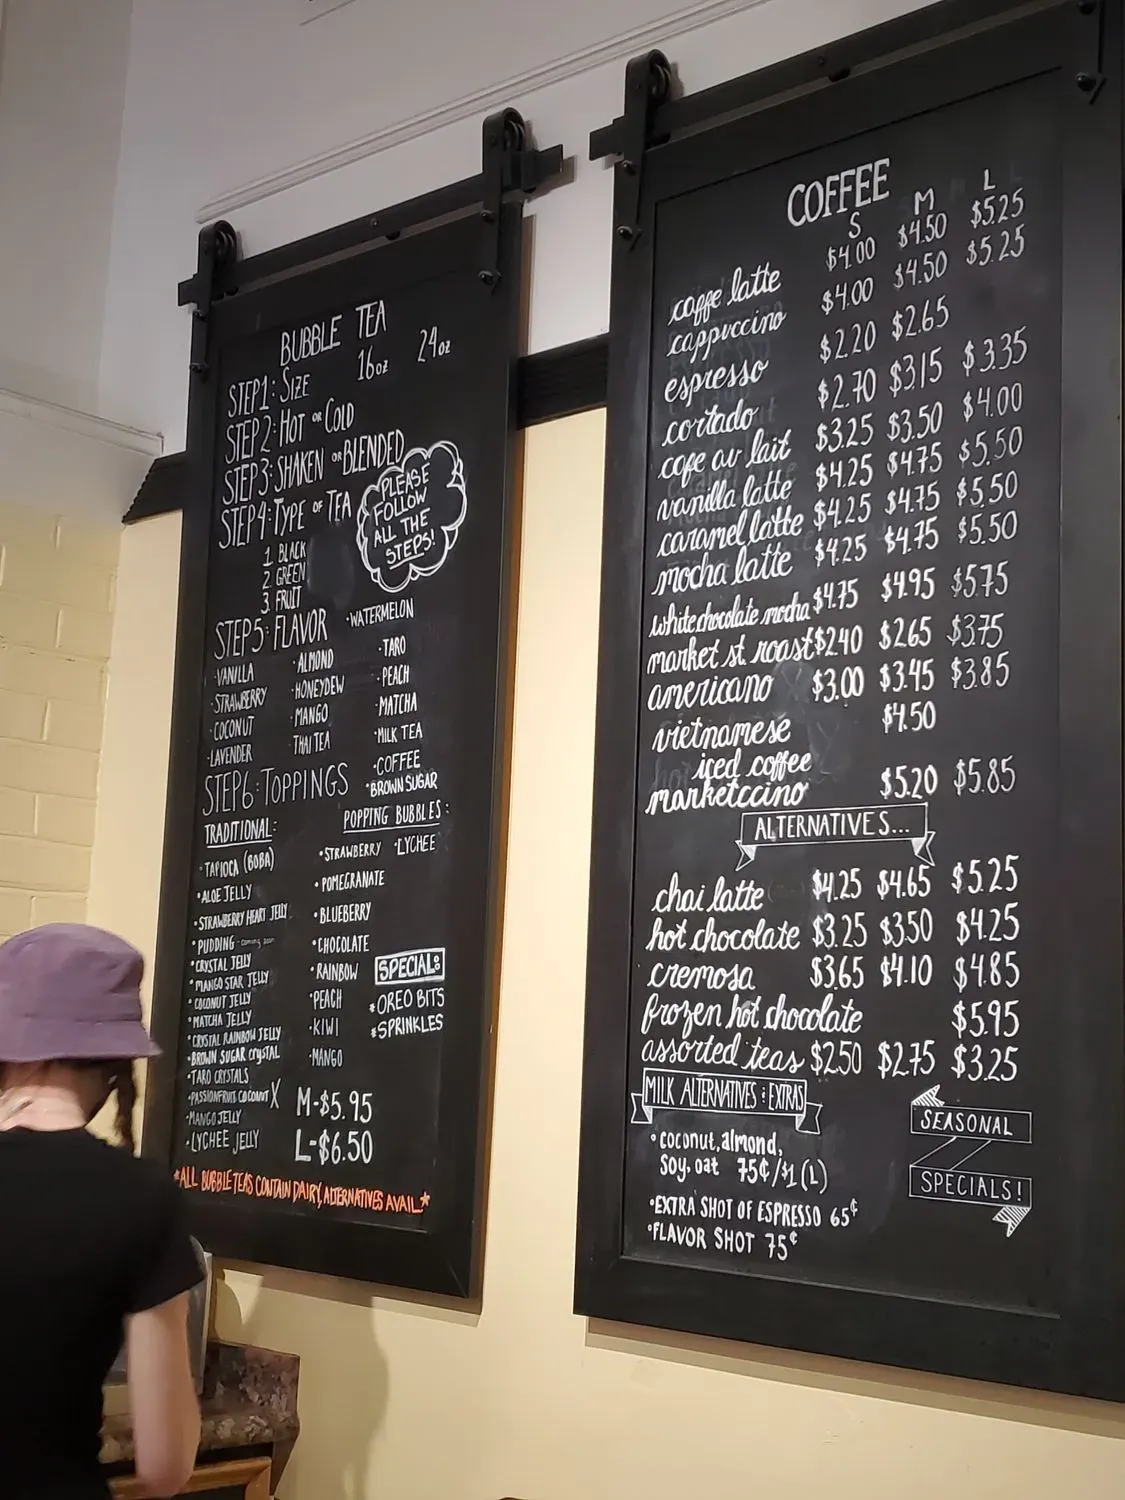 BUBBLE TEA
16oz 24oz
STEP1: SIZE
STEP2: HOT OR COLD
STEP3: SHAKEN OR BLENDED
STEP4: TYPE OF TEA
1. BLACK
2. GREEN
3. FRUIT
PLEASE
FOLLOW
ALL THE
STEPS!
STEP5: FLAVOR
·VANILLA
·STRAWBERRY
·COCONUT
·LAVENDER
·ALMOND
·HONEYDEW
·MANGO
THAI TEA
·WATERMELON
·TARO
·PEACH
·MATCHA
·MILK TEA
·COFFEE
·BROWN SUGAR
STEP6: TOPPINGS
TRADITIONAL:
·TAPIOCA (BOBA)
·ALOE JELLY
·STRAWBERRY HEART JELLY
·PUDDING - coming soon
·CRYSTAL JELLY
·MANGO STAR JELLY
·COCONUT JELLY
·MATCHA JELLY
·CRYSTAL RAINBOW JELLY
·BROWN SUGAR crystal
·TARO CRYSTALS
·PASSIONFRUIT COCONUT X
·MANGO JELLY
·LYCHEE JELLY
POPPING BUBBLES:
·STRAWBERRY ·LYCHEE
·POMEGRANATE
·BLUEBERRY
·CHOCOLATE
·RAINBOW
·PEACH
·KIWI
·MANGO
SPECIAL:
*OREO BITS
*SPRINKLES
M-$5.95
L-$6.50
*ALL BUBBLE TEAS CONTAIN DAIRY, ALTERNATIVES AVAIL.*
COFFEE
S M L
caffe latte $4.00 $4.50 $5.25
cappuccino $4.00 $4.50 $5.25
espresso $2.20 $2.65
cortado $2.70 $3.15 $3.35
cafe au lait $3.25 $3.50 $4.00
vanilla latte $4.25 $4.75 $5.50
caramel latte $4.25 $4.75 $5.50
mocha latte $4.25 $4.75 $5.50
white chocolate mocha $4.75 $4.95 $5.75
market st. roast $2.40 $2.65 $3.75
americano $3.00 $3.45 $3.85
vietnamese $4.50
iced coffee
marketccino $5.20 $5.85
ALTERNATIVES...
chai latte $4.25 $4.65 $5.25
hot chocolate $3.25 $3.50 $4.25
cremosa $3.65 $4.10 $4.85
frozen hot chocolate $5.95
assorted teas $2.50 $2.75 $3.25
MILK ALTERNATIVES : EXTRAS
·coconut, almond,
soy, oat 75¢/$1 (L)
·EXTRA SHOT OF ESPRESSO 65¢
·FLAVOR SHOT 75¢
SEASONAL
SPECIALS!